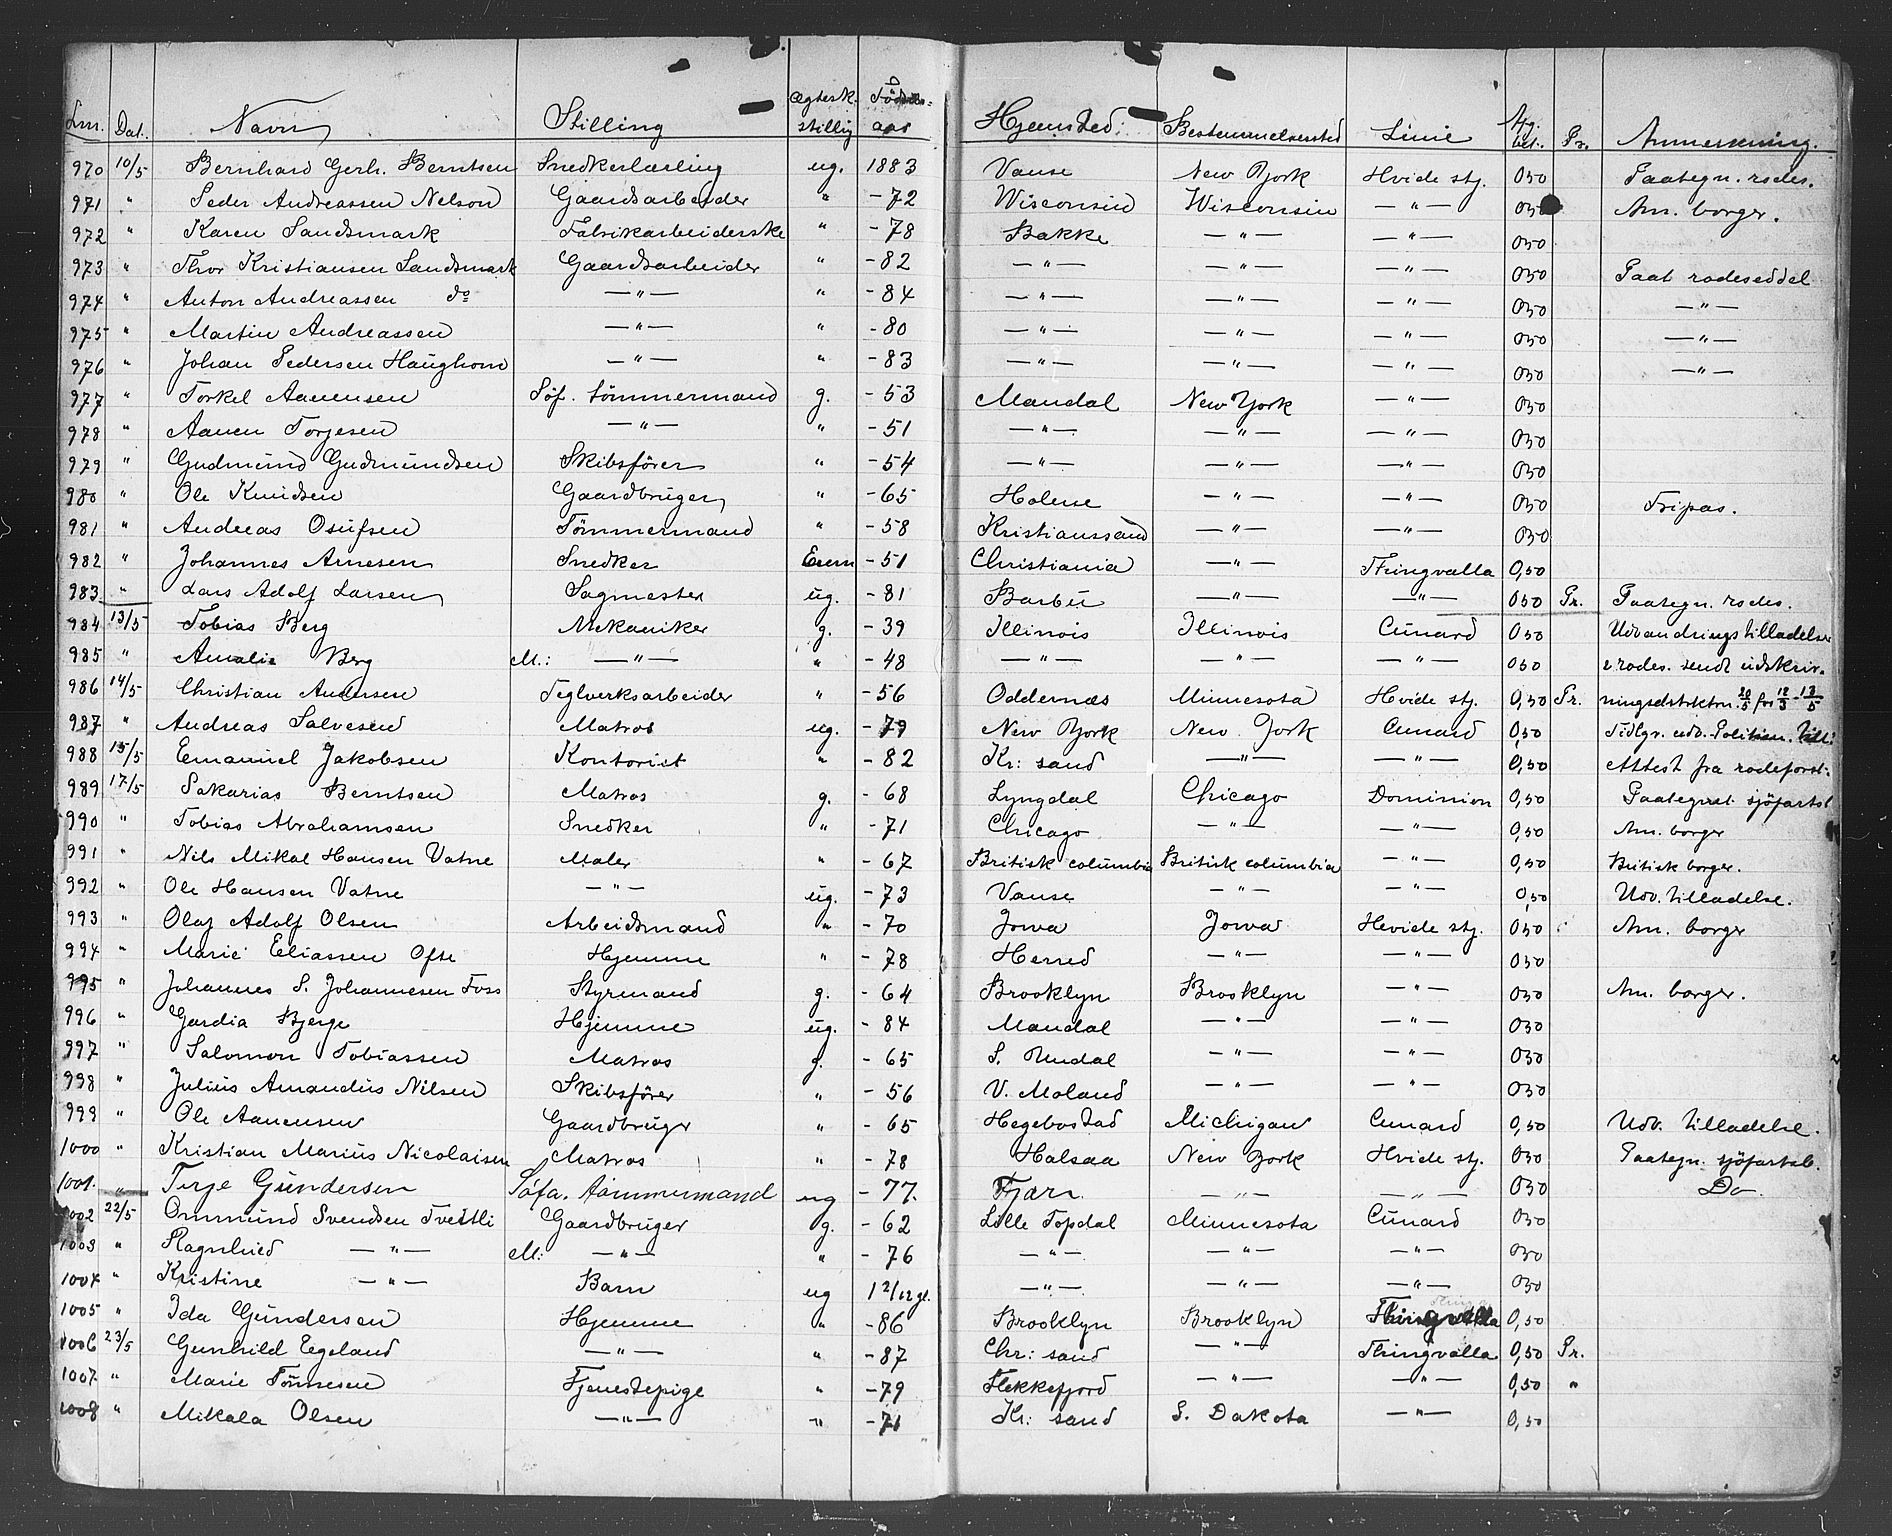 Lnr. Dat. Navn Stilling Ægtesk. stillig Fødsels-aar Hjemsted. Bestemmelsessted Linie Afg. bet. Pr. Anmerkning.
970 10/5 Bernhard Gerh. Berntsen Snedkerlærling ug. 1883 Vanse New York Hvide stj. 050 Paategn. rodes.
971 " Peder Andreassen Nelson Gaardsarbeider " -72 Wisconsin Wisconsin —"— 050 Am. borger.
972 " Karen Sandsmark Fabrikarbeiderske " -78 Bakke —"— —"— 050
973 " Thor Kristiansen Sandsmark Gaardsarbeider " -82 —"— —"— —"— 050 Paat rodeseddel
974 " Anton Andreassen do —"— " -84 —"— —"— —"— 050 —"—
975 " Martin Andreassen —"— " -80 —"— —"— —"— 050 —"—
976 " Johan Pedersen Haughom —"— " -83 —"— —"— —"— 050 —"—
977 " Torkel Aanensen Søf. tømmermand g. -53 Mandal New York —"— 050
978 " Aanen Torjesen —"— " -51 —"— —"— —"— 050
979 " Gudmund Gudmundsen Skibsfører " -54 —"— —"— —"— 050
980 " Ole Knudsen Gaardbruger " -65 Holme —"— —"— 050 Fripas.
981 " Andreas Osufsen Tømmermand " -58 Kristianssand —"— —"— 050
982 " Johannes Arnesen Snedker Enem -51 Christiania —"— Thingvalla 0,50
983. " Lars Adolf Larsen Sagmester ug. -81 Barbu —"— —"— 050 Pr. Paategn. rodes.
984 13/5 Tobias Berg Mekaniker g. -39 Illinois Illinois Cunard 050 Udvandringstilladelse
985 " Amalie Berg M.: —"— " -48 —"— —"— —"— 050 & rodes. sendt udskriv-
986 14/5 Christian Andersen Teglverksarbeider " -56 Oddernæs Minnesota Hvide stj. 0,50 Pr. ningsdistriktn. 20/5 for 12/3 - 13/5
987 " Andreas Salvesen Matros ug. -79 New York New York Cunard 0,50 Tidlgr. udv. Politiem. till:
988 15/5 Emanuel Jakobsen Kontorist " -82 Kr: sand —"— —"— 0,50 Attest fra rodeforst:
989 17/5 Sakarias Berntsen Matros g. -68 Lyngdal Chicago Dominion 0,50 Paategnet sjøfartsb
990 " Tobias Abrahamsen Snedker " -71 Chicago —"— —"— 0,50 Am. borger
991 " Nils Mikal Hansen Vatne Maler " -67 Britisk columbia Britisk columbia —"— 0,50 Britisk borger.
992 " Ole Hansen Vatne —"— ug. -73 Vanse —"— —"— 0,50 Udv. tilladelse.
993 " Olaf Adolf Olsen Arbeidsmand " -70 Jowa Jowa Hvide stj. 050 Am. borger
994 " Marie Eliassen Ofte Hjemme " -78 Herred —"— —"— 050
995 " Johannes S. Johannesen Foss Styrmand g. -64 Brooklyn Brooklyn —"— 050 Am. borger.
996 " Gardia Bjerge Hjemme ug. -84 Mandal —"— —"— 050
997 " Salomon Tobiassen Matros g. -65 S. Undal —"— —"— 050
998 " Julius Amandus Nilsen Skibsfører " -56 V. Moland —"— —"— 050
999 " Ole Aanensen Gaardbruger " -65 Hegebostad Michigan Cunard 0,50 Udv. tilladelse.
1000 " Kristian Marius Nicolaisen Matros " -78 Halsaa New York Hvide stj. 050 Paategn. sjøfartsb.
1001. " Terje Gundersen Søfa. tømmermand ug -77. Fjære —"— —"— 050 Do.
1002 22/5 Ommund Svendsen Tveitli Gaardbruger g. -62 Lille Topdal Minnesota Cunard 050
1003 " Ragnhild —"— M: —"— " -76 —"— —"— —"— 050
1004 " Kristine —"— Barn ug 1 2/12 gl. —"— —"— —"— 050
1005 " Ida Gundersen Hjemme " -86 Brooklyn Brooklyn Thingvalla 0,50
1006 23/5 Gunhild Egeland —"— " -87 Chr: sand —"— Thingvalla 0,50 Pr.
1007 " Marie Tønnesen Tjenestepige " -79 Flekkefjord —"— —"— 0,50 "
1008 " Mikala Olsen —"— " -71 Kr: sand S. Dakota —"— 0,50